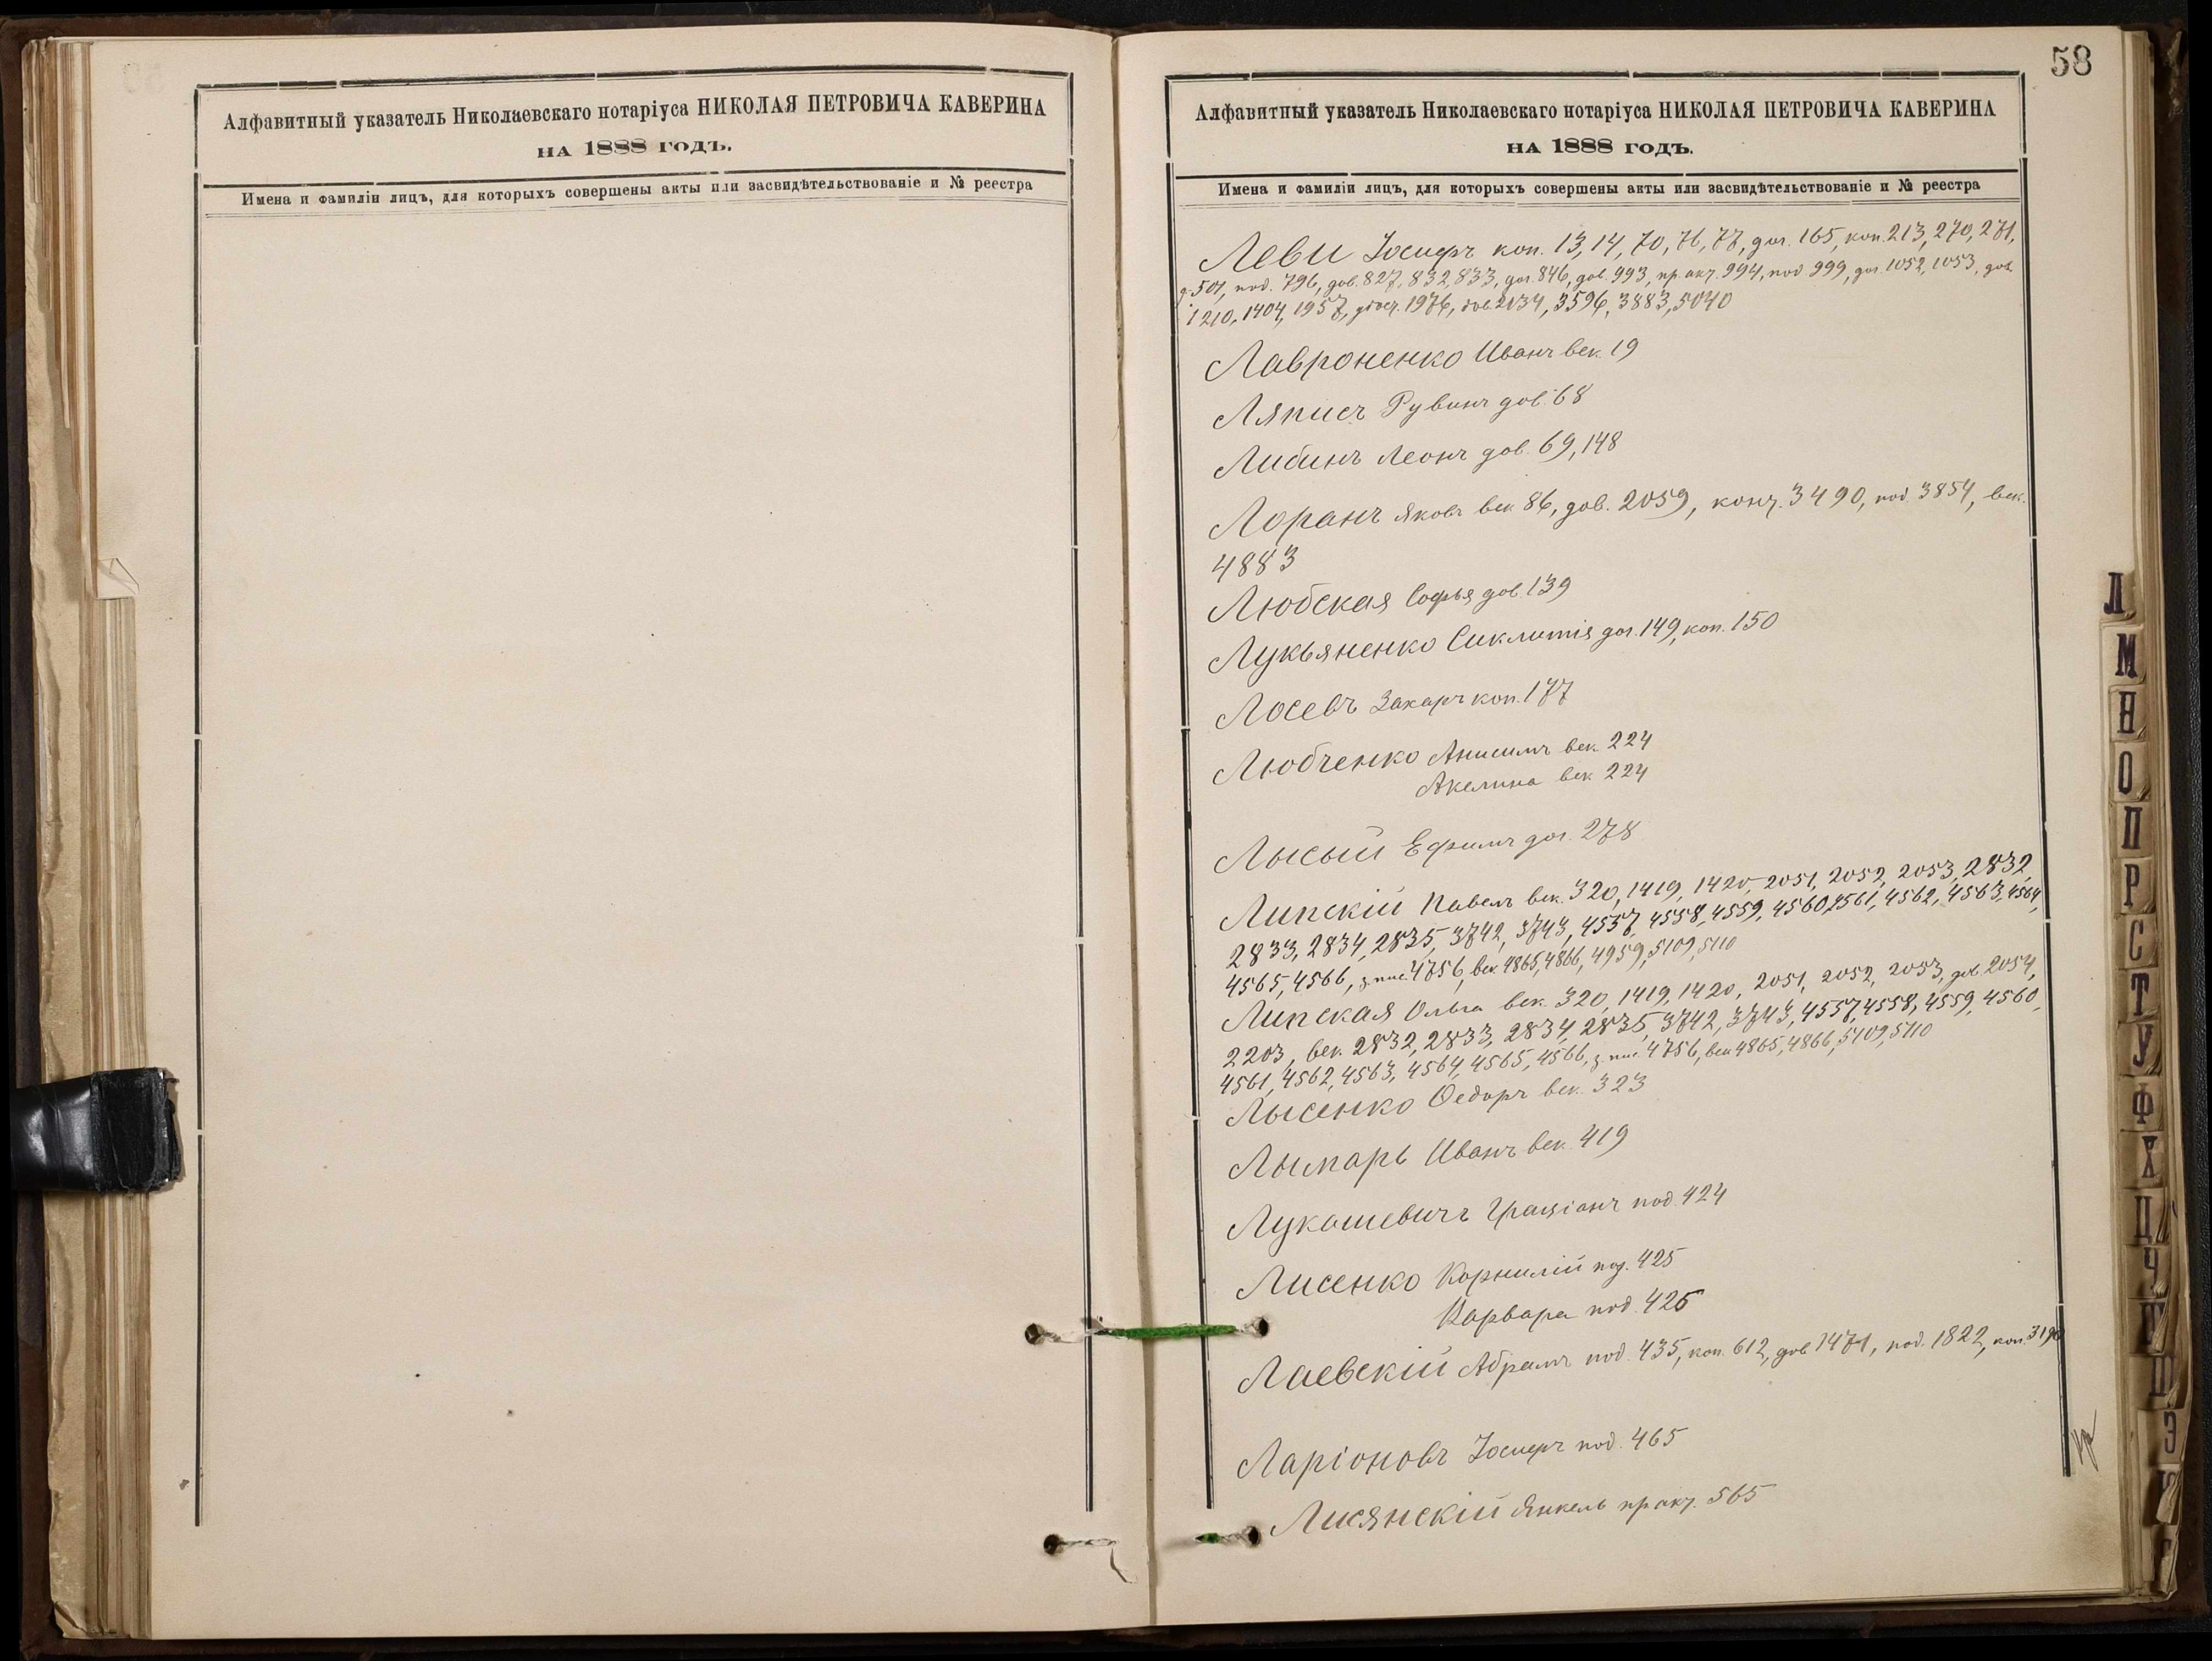 Алфавитный указатель Николаевскаго нотаріуса НИКОЛАЯ ПЕТРОВИЧА КАВЕРИНА
НА 1888 ГОДЪ.
Имена и фамиліи лицъ, для которыхъ совершены акты или засвидѣтельствованіе и № реестра
58
Алфавитный указатель Николаевскаго нотаріуса НИКОЛАЯ ПЕТРОВИЧА КАВЕРИНА
НА 1888 ГОДЪ.
Имена и фамиліи лицъ, для которыхъ совершены акты или засвидѣтельствованіе и № реестра
Леви Іосифъ коп. 13, 14, 70, 76, 77, дог. 165, коп. 213, 270, 271,
д. 501, под. 796, дов. 827, 832, 833, дог. 846, дов. 993, пр. акт. 994, под 999, дог. 1052, 1053, дов.
1210, 1404, 1957, 1976, дов. 2134, 3596, 3883, 5040
Лавроненко Иванъ век. 19
Ляписъ Рувинъ дов. 68
Либинъ Леонъ дов. 69, 148
Лоранъ Яковъ век 86, дов. 2059, конт. 3490, под 3854, век.
4883
Любская Софья дов. 139
Лукьяненко Сиклитія дог. 149, коп. 150
Лосевъ Захаръ коп. 177
Любченко Анисимъ век. 224
Акелина век 224
Лысый Ефимъ дог. 278
Липскій Павелъ век. 320, 1419, 1420, 2051, 2052, 2053, 2832,
2833, 2834, 2835, 3742, 3743, 4557, 4558, 4559, 4560, 4561, 4562, 4563, 4564,
4565, 4566, з. пис. 4756, век. 4865, 4866, 4959, 5109, 5110
Липская Ольга век. 320, 1419, 1420, 2051, 2052, 2053, дов. 2054,
2203, век. 2832, 2833, 2834, 2835, 3742, 3743, 4557, 4558, 4559, 4560,
4561, 4562, 4563, 4564, 4565, 4566, з. пис. 4756, век 4865, 4866, 5109, 5110
Лысенко Ѳедоръ век. 323
Лымарь Иванъ век. 419
Лукашевичъ Граціанъ под 424
Лисенко Корнилій под. 425
Варвара под. 425
Лаевскій Абрамъ под. 435, коп. 612, дов 1471, под. 1822, коп.
Ларіоновъ Іосифъ под. 465
Лисянскій Янкель пр акт. 565
Л
М
Н
О
П
Р
С
Т
У
Ф
Х
Ц
Ч
Ш
Э